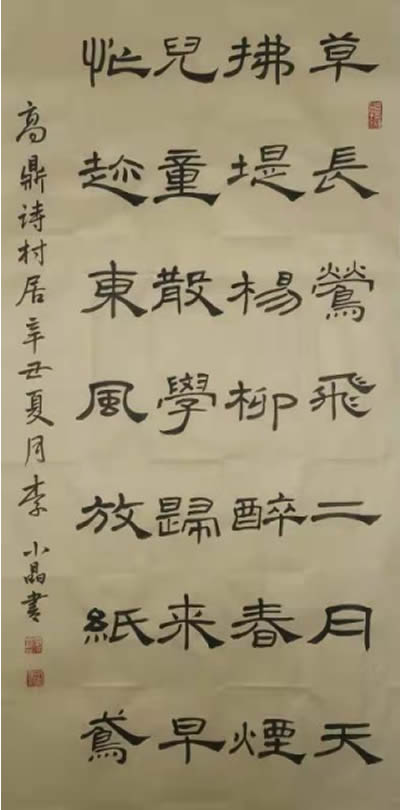 草長鶯飛二月天
拂堤楊柳醉春煙
兒童散學歸来早
忙趂東風放紙鳶
高鼎诗村居辛丑夏月李小晶書